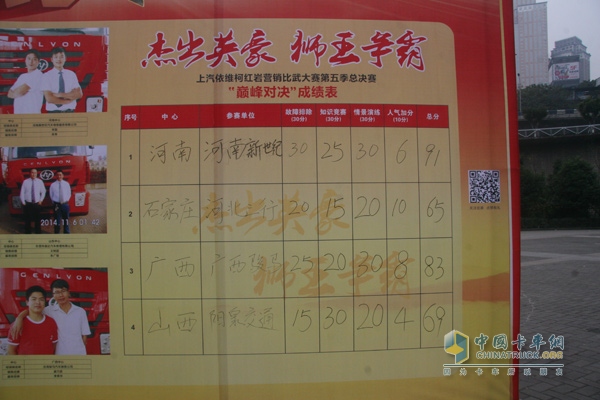 杰出英豪 狮王争霸
上汽依维柯红岩营销比武大赛第五季总决赛
"巅峰对决"成绩表
序号 中心 参赛单位 故障排除(30分) 知识竞赛(30分) 情景演练(30分) 人气加分(10分) 总分
1 河南 河南新世纪 30 25 30 6 91
2 石家庄 河北三行 20 15 20 10 65
3 广西 广西 25 20 30 8 83
4 山西 阳泉交通 15 30 20 4 69
杰出英豪
狮王争霸
GENLYON
GENLYON
2014.11.6 01:42
GENLYON
中国卡车网
CHINATRUCK.ORG